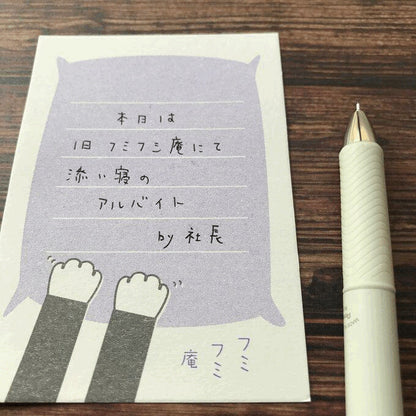 本日は
旧フミフミ庵にて
添い寝の
アルバイト
by 社長
フミ
フミ
庵